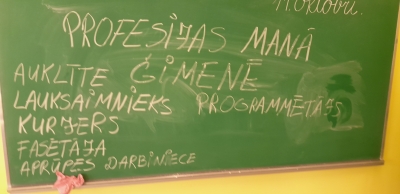 11. oktobri.
PROFESIJAS MANĀ
ĢIMENĒ
AUKLĪTE
LAUKSAIMNIEKS PROGRAMMĒTĀJS
KURJERS
FASĒTĀJA
APRŪPES DARBINIECE